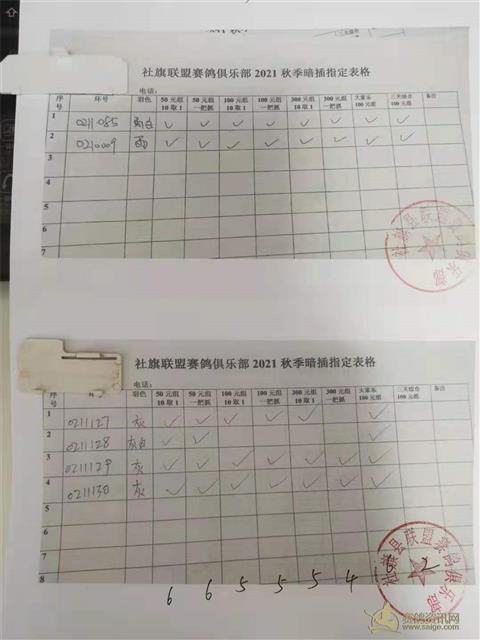 社旗联盟赛鸽俱乐部 2021 秋季暗插指定表格
电话:
序号 环号 羽色 50 元组 10 取 1 50 元组 一把抓 100 元组 10 取 1 100 元组 一把抓 300 元组 10 取 1 300 元组 一把抓 大家乐 100 元组 三关综合 100 元组 备注
1 0211085 雨白 ✓ ✓ ✓ ✓ ✓ ✓ ✓ ✓
2 0210009 雨 ✓ ✓ ✓ ✓ ✓ ✓ ✓ ✓
3
4
5
6
7
社旗县联盟 俱乐部
社旗联盟赛鸽俱乐部 2021 秋季暗插指定表格
电话:
序号 羽色 50 元组 10 取 1 50 元组 一把抓 100 元组 10 取 1 100 元组 一把抓 300 元组 10 取 1 300 元组 一把抓 大家乐 100 元组 三关综合 100 元组 备注
1 0211127 灰 ✓ ✓ ✓ ✓ ✓ ✓
2 0211128 灰白 ✓ ✓
3 0211129 灰 ✓ ✓ ✓ ✓ ✓ ✓ ✓
4 0211130 灰 ✓ ✓ ✓ ✓ ✓ ✓ ✓
5
6
7
8
6 6 5 5 5 4 2
社旗县联盟赛鸽俱乐部
赛鸽资讯网
www.saige.com